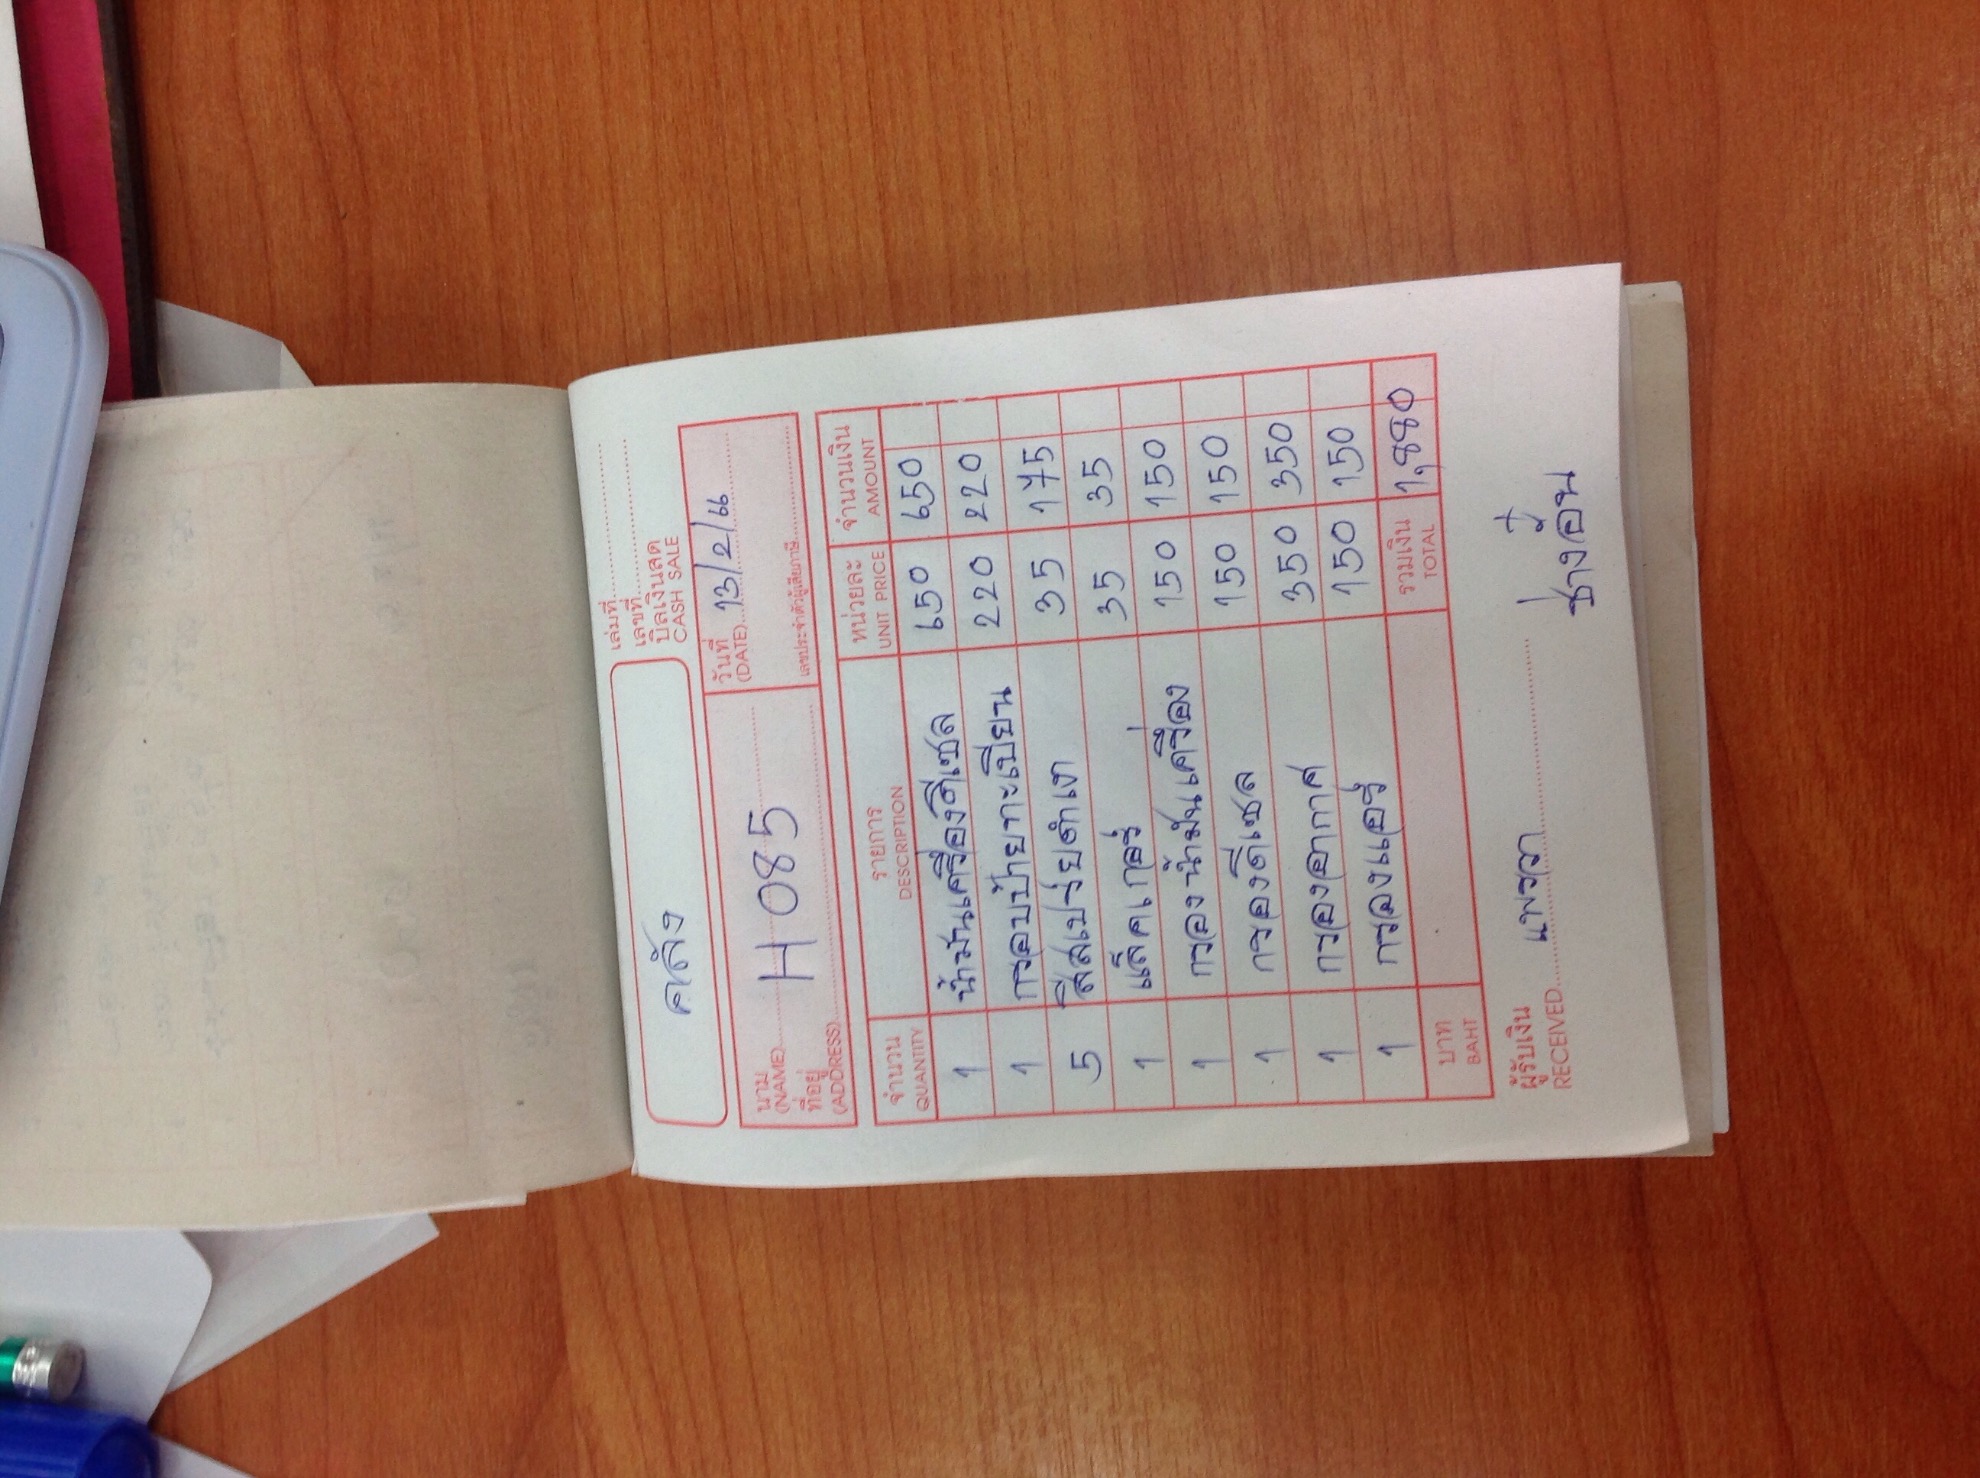 เล่มที่
เลขที่
บิลเงินสด
CASH SALE
คลัง
นาม
(NAME) H 085
ที่อยู่
(ADDRESS)
วันที่
(DATE) 13/2/66
เลขประจำตัวผู้เสียภาษี
จำนวน รายการ หน่วยละ จำนวนเงิน
QUANTITY DESCRIPTION UNIT PRICE AMOUNT
1 น้ำมันเครื่องดีเซล 650 650
1 กรอบป้ายทะเบียน 220 220
5 สีสเปรย์ดำเงา 35 175
1 แล็คเกอร์ 35 35
1 กรองน้ำมันเครื่อง 150 150
1 กรองดีเซล 150 150
1 กรองอากาศ 350 350
1 กรองแอร์ 150 150
บาท รวมเงิน 1,880
BAHT TOTAL
ผู้รับเงิน
RECEIVED แพรวา
ช่างอ้น